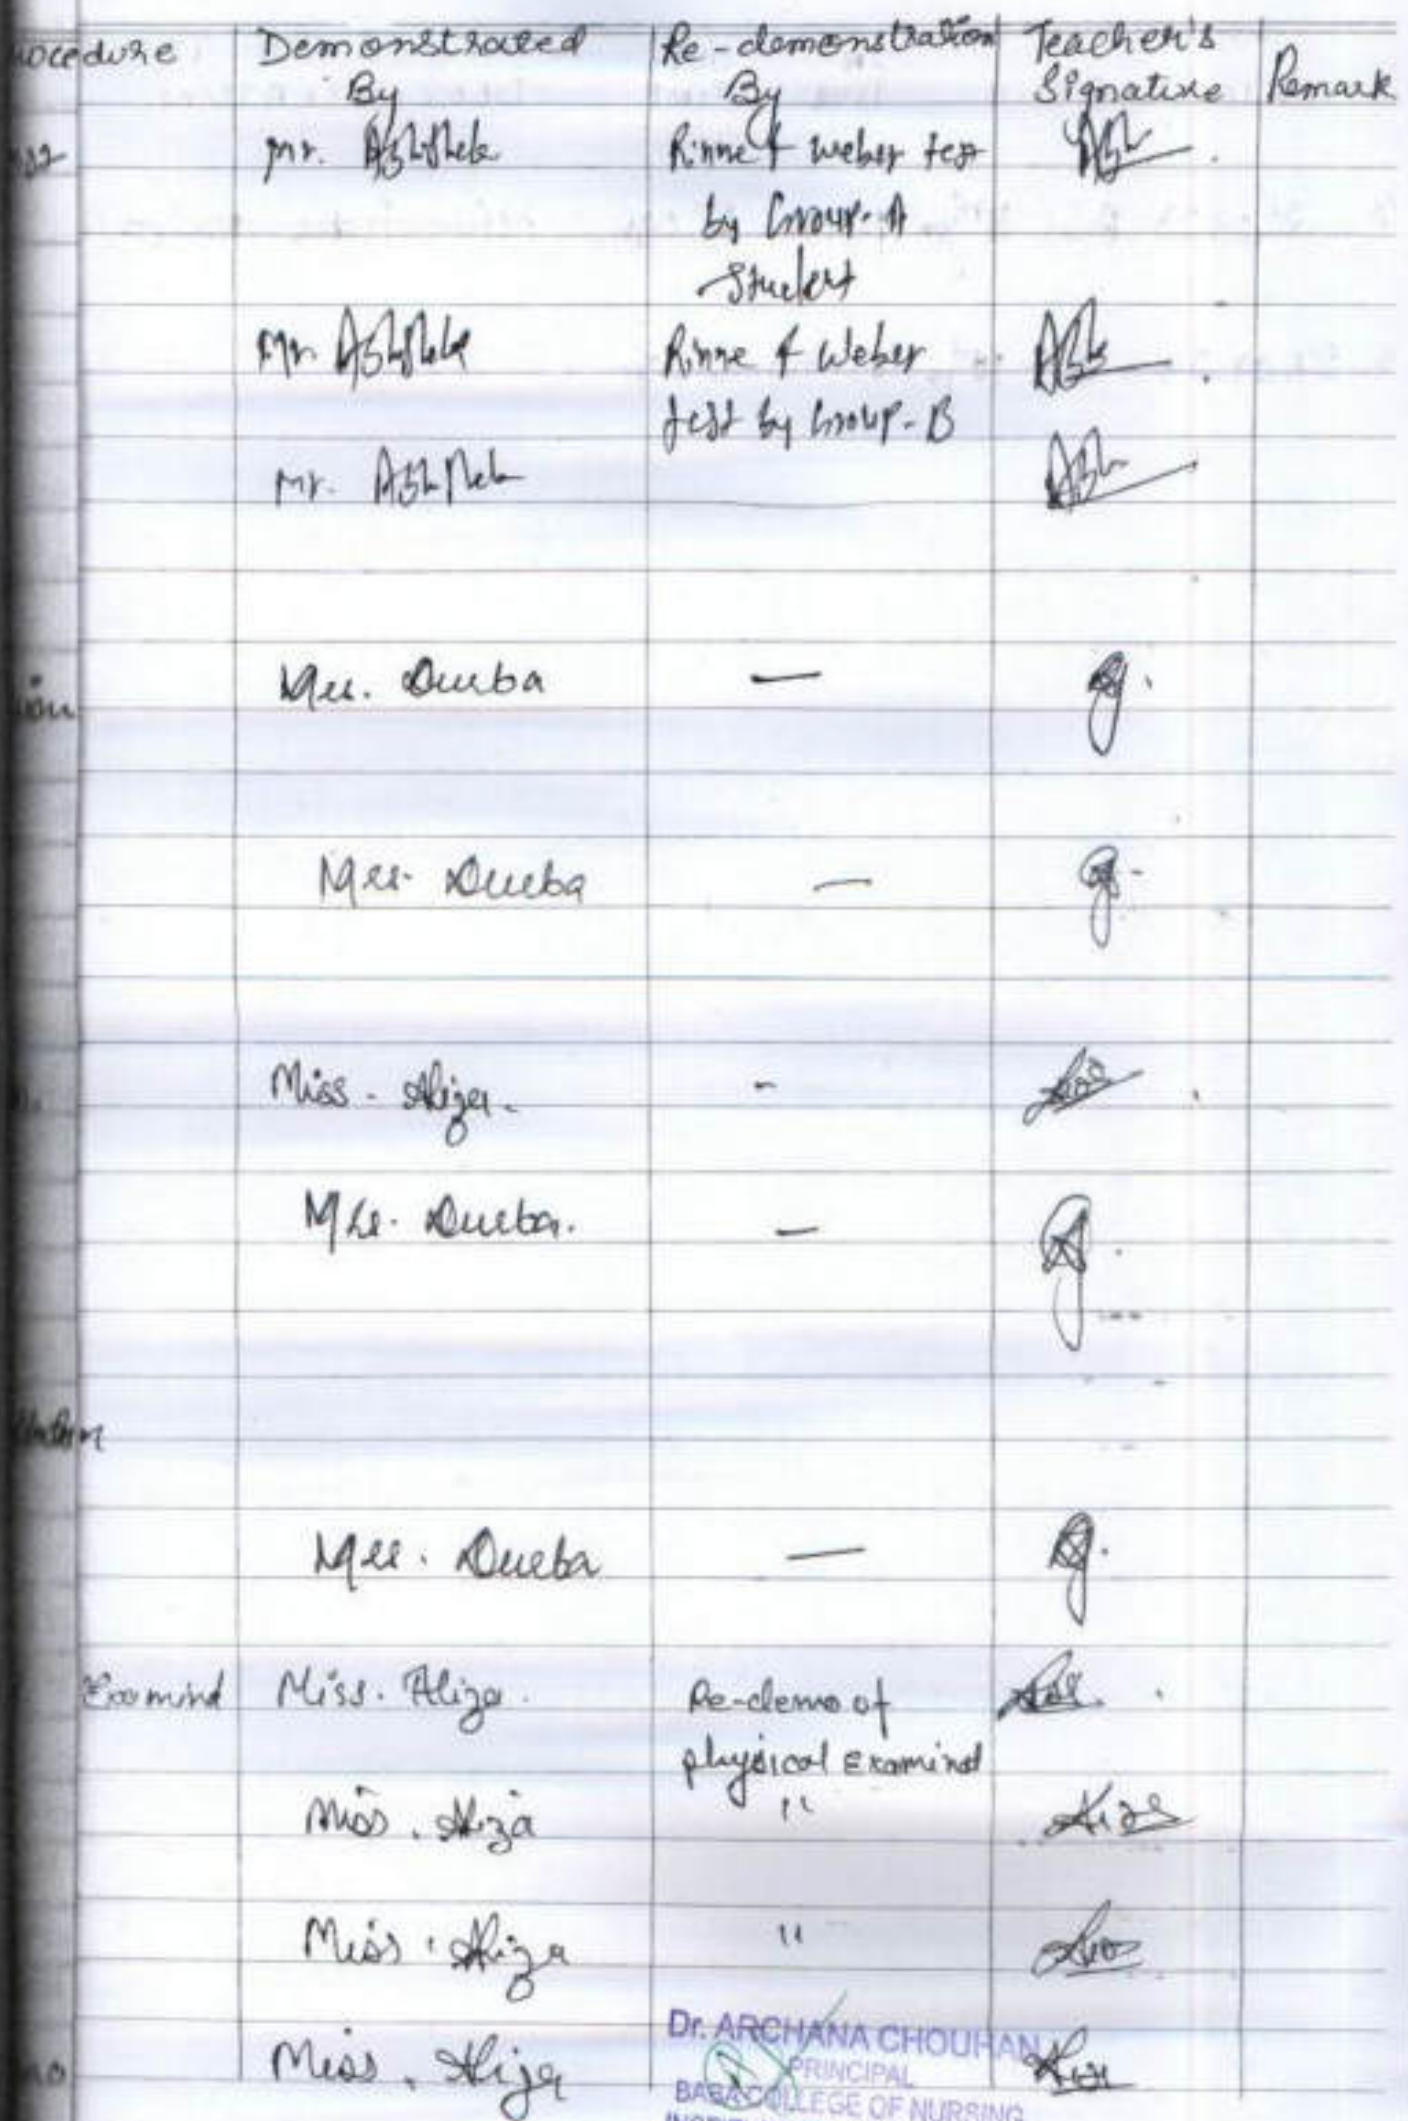 Procedure Demonstrated By Re-demonstration By Teacher's Signature Remark
Mr. Abhishek Rinne & Weber test
by Group-A
Student
Mr. Abhishek Rinne & Weber
test by Group-B
Mr. Abhishek
Mrs. Durba —
Mrs. Durba —
Miss - Aliza. -
Mrs. Durba. —
Mrs. Durba —
Examind Miss. Aliza. Re-demo of
physical Examinat
Miss. Aliza "
Miss. Aliza "
Miss. Aliza
Dr. ARCHANA CHOUHAN
PRINCIPAL
BABA COLLEGE OF NURSING